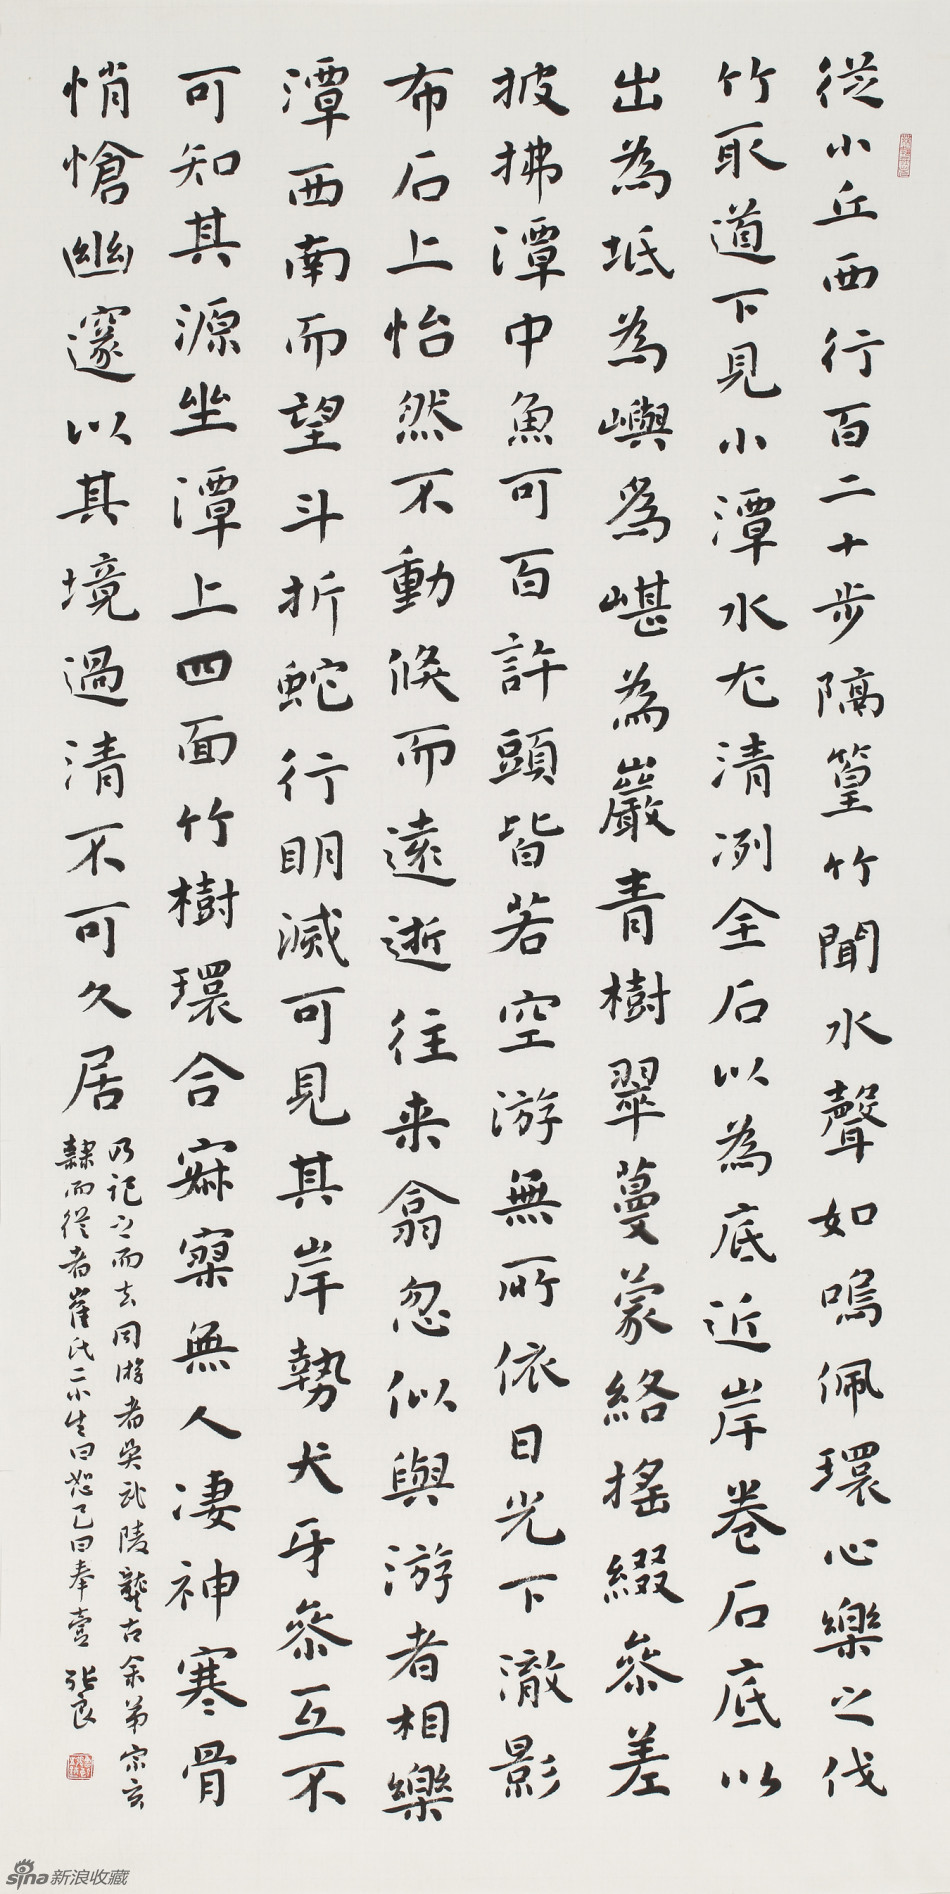 從小丘西行百二十步隔篁竹聞水聲如鳴佩環心樂之伐
竹取道下見小潭水尤清冽全石以為底近岸卷石底以
出為坻為嶼為嵁為巖青樹翠蔓蒙絡搖綴參差
披拂潭中魚可百許頭皆若空游無所依日光下澈影
布石上怡然不動倐而遠逝往来翕忽似與游者相樂
潭西南而望斗折蛇行明滅可見其岸勢犬牙參互不
可知其源坐潭上四面竹樹環合寂寥無人凄神寒骨
悄愴幽邃以其境過清不可久居
乃記之而去同游者吳武陵龔古余弟宗玄
隸而從者崔氏二小生曰恕己曰奉壹 張良
sina新浪收藏